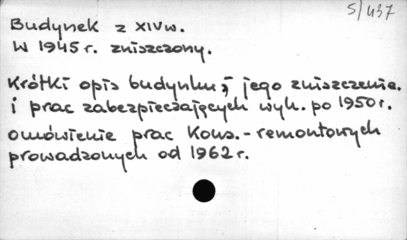 5/437
Budynek z XIVw.
W 1945r. zniszczony.
Krótki opis budynku, jego zniszczenia.
i prac zabezpieczających wyk. po 1950r.
omówienie prac Kons.-remontowych
prowadzonych od 1962r.